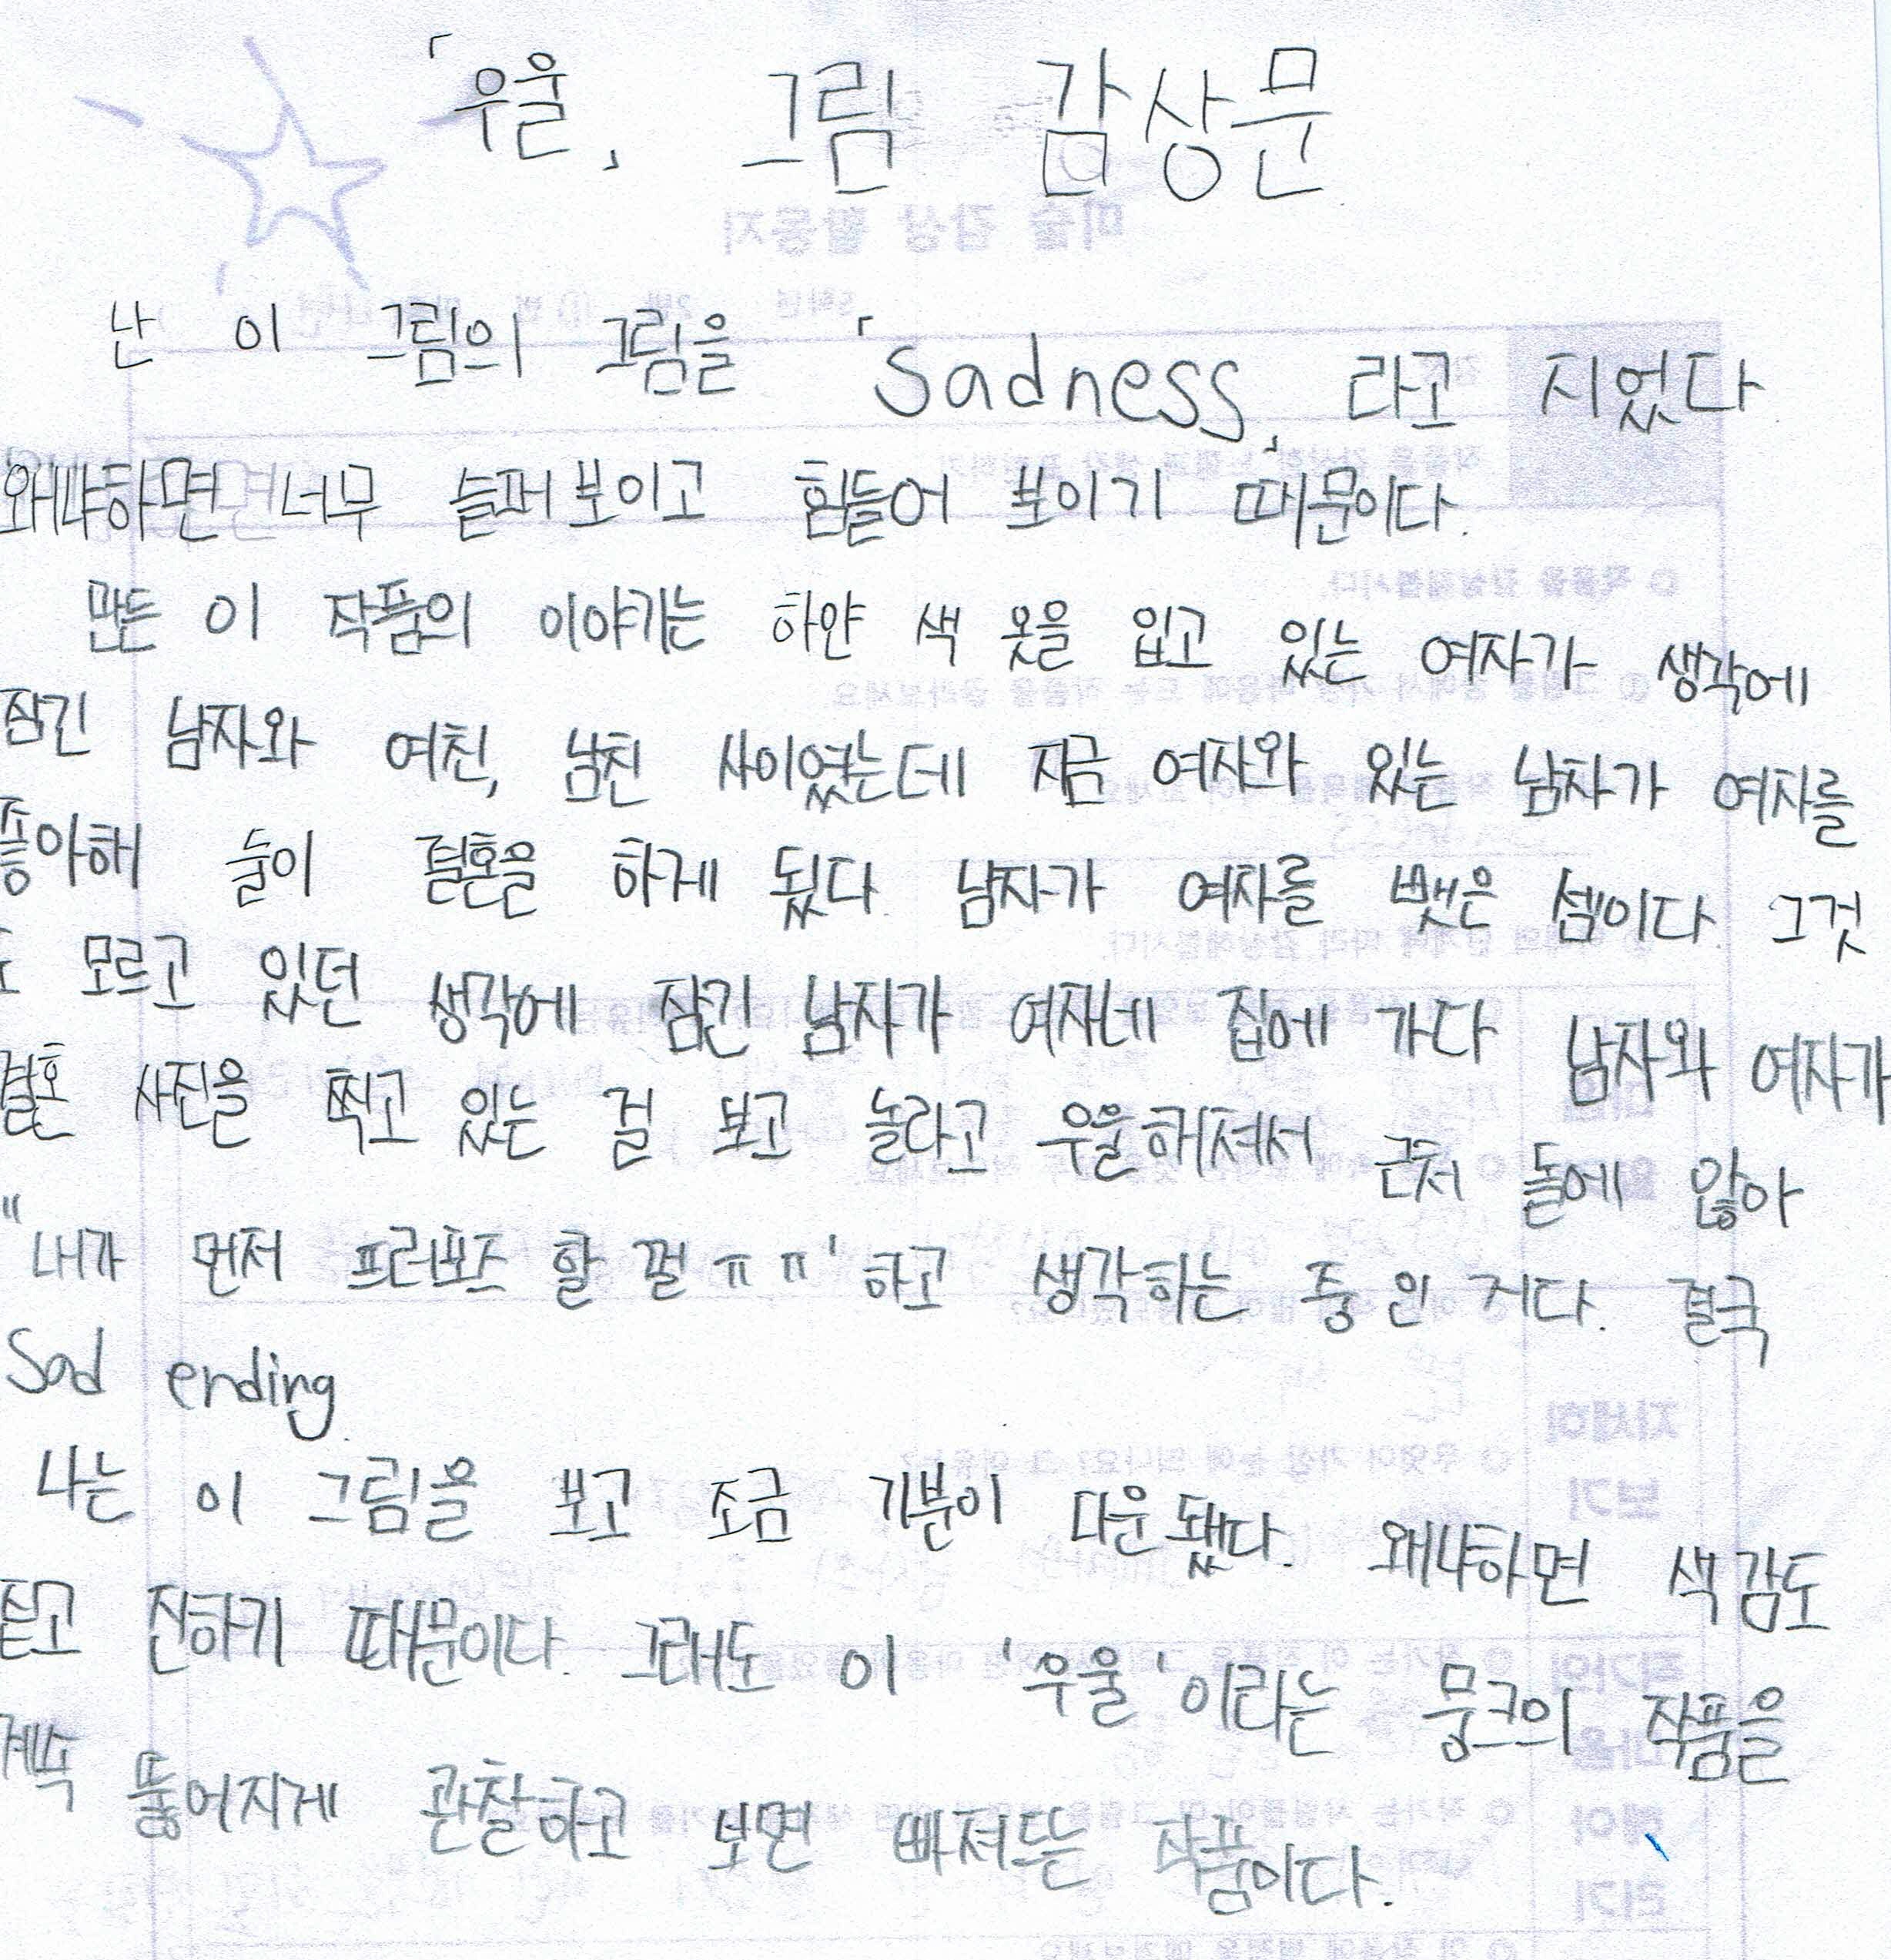 「우울」 그림 감상문
난 이 그림의 그림을 「Sadness」 라고 지었다
왜냐하면 너무 슬퍼보이고 힘들어 보이기 때문이다.
만든 이 작품의 이야기는 하얀 색 옷을 입고 있는 여자가 생각에
잠긴 남자와 여친, 남친 사이였는데 지금 여자와 있는 남자가 여자를
좋아해 둘이 결혼을 하게 됬다. 남자가 여자를 뺏은 셈이다. 그것
도 모르고 있던 생각에 잠긴 남자가 여자네 집에 가다 남자와 여자가
결혼 사진을 찍고 있는 걸 보고 놀라고 우울해져서 근처 돌에 않아
"내가 먼저 프러포즈 할 껄ㅠㅠ' 하고 생각하는 중인 거다. 결국
Sad ending.
나는 이 그림을 보고 조금 기분이 다운됐다. 왜냐하면 색감도
짙고 진하기 때문이다. 그래도 이 '우울'이라는 뭉크의 작품을
계속 뚫어지게 관찰하고 보면 빠져드는 작품이다.